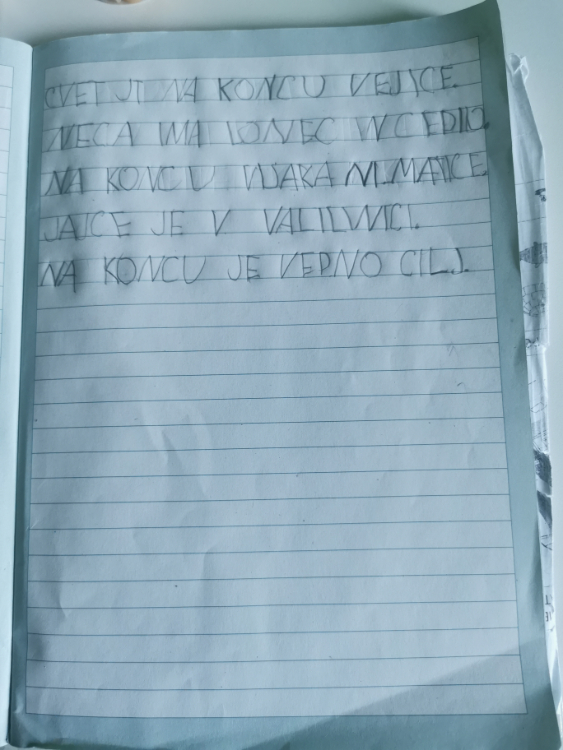 CVET JE NA KONCU VEJICE.
NECA IMA LONEC IN CEDILO.
NA KONCU VIJAKA NI MATICE.
JAJCE JE V VALILNICI.
NA KONCU JE VEDNO CILJ.